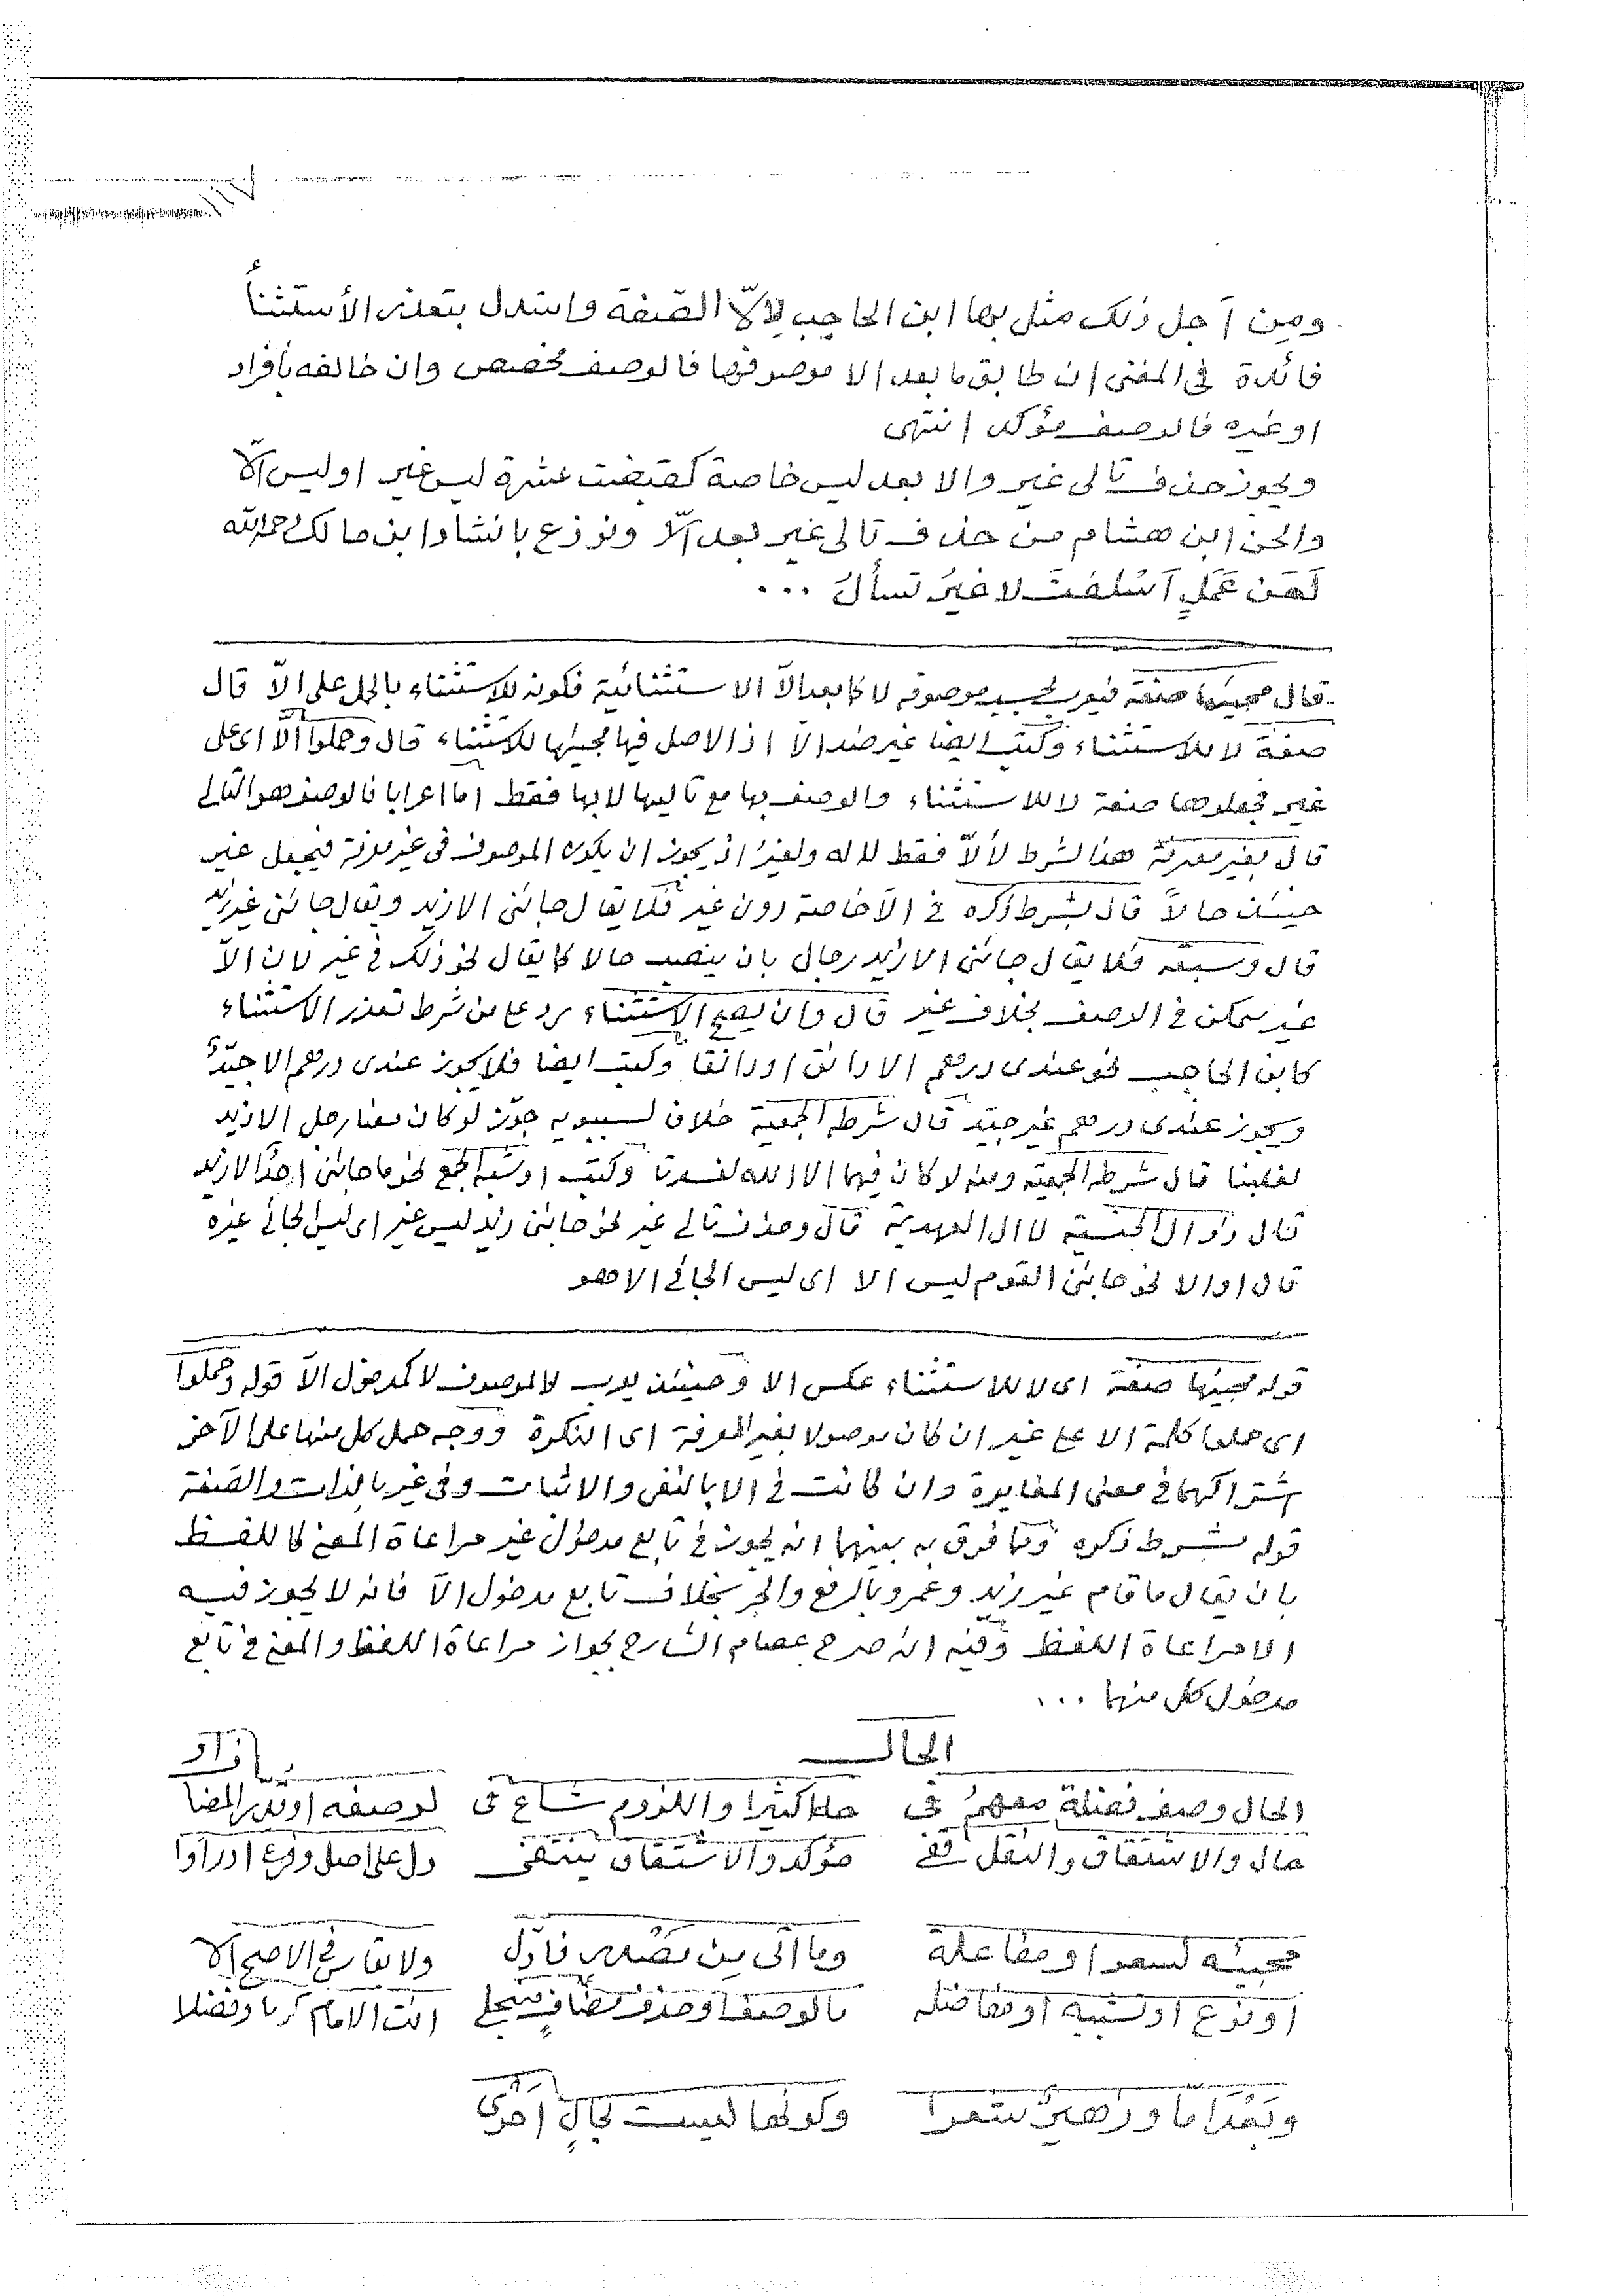 ومن أجل ذلك مثل بها ابن الحاجب لإلّا الصّفة واستدل بتعذر الأستثنأ
فائدة في المغنى ان طابق ما بعد الا موصوفها فالوصف مخصص وان خالفه بأفراد
او غيره فالوصف مؤكد انتهى
ويجوز حذف تالى غير والا بعد ليس خاصة كقبضت عشرة ليس غير او ليس الّا
والحن ابن هشام من حذف تالى غير بعد الّا ونوزع بانشاد ابن مالك رحمه الله
لَعَن عَمَلٍ اَسْلفتَ لا غيرُ تسألُ ...
قال مجيئها صفة فيعرب بحسب موصوفه لا كما بعد الّا الاستثنائية فكونه للاستثناء بالحمل على الّا قال
صفة لا للاستثناء وكتب ايضا غير ضد الّا اذ الاصل فيها مجيئها للاستثناء قال وحملوا الّا اى على
غير فجعلوها صفة لا للاستثناء والوصف بها مع تاليها لا بها فقط اما اعرابا فالوصف هو التالى
قال بغير معرفة هذا الشرط لألّا فقط لا له ولغيرُ اذ يجوز ان يكون الموصوف فى غير معرفة فيجعل غير
حينئذ حالاً قال بشرط ذكره في الّا خاصة دون غير فلا يقال جائنى الا زيد ويقال جائنى غير زيد
قال وسبقه فلا يقال جائنى الا زيد رجال بان ينصب حالا كما يقال نحو ذلك فى غير لان الّا
غير متمكن فى الوصف بخلاف غير قال وان يصح الاستثناء رد على من شرط تعذر الاستثناء
كابن الحاجب نحو عندى درهم الا دانق او دانقا وكتب ايضا فلا يجوز عندى درهم الا جيّدٌ
ويجوز عندى درهم غير جيّد قال شرطه الجمعية خلاف لسيبويه جوّز لو كان معنا رجل الا زيد
لغلبنا قال شرطه الجمعية ومنه لو كان فيهما الا الله لفسدتا وكتب او شبه الجمع نحو ما جائنى احدٌ الا زيد
قال ذو ال الجنسية لا ال العهدية قال وحذف تالى غير نحو جائنى زيد ليس غير اى ليس الجائى غيره
قال او الا نحو جائنى القوم ليس الا اى ليس الجائى الا هو
قوله مجيئها صفة اى لا للاستثناء عكس الا وحينئذ يعرب كالموصوف لا كمدخول الّا قوله وحملوا
اى حملوا كلمة الا على غير ان كان موصولا بغير المعرفة اى النكرة ووجه حمل كل منهما على الآخر
اشتراكهما فى معنى المغايرة وان كانت فى الا بالنفى والاثبات وفى غير بالذات والصّفة
قوله بشرط ذكره ومما فرق به بينهما انه يجوز فى تابع مدخول غير مراعاة المعنى كاللفظ
بان يقال ما قام غير زيد وعمرو بالرفع والجر بخلاف تابع مدخول الّا فانه لا يجوز فيه
الا مراعاة اللفظ وفيه انه صرح عصام الشارح بجواز مراعاة اللفظ والمعنى فى تابع
مدخول كل منهما ...
الحال
الحال وصف فضلة مفهمُ فى
حال والاشتقاق والنقل قفى
مجيئه لسعر او مفاعلة
او نوع او تشبيه او مفاضله
وبَعْدَ امّا وزهيرٌ شعرا
حلا كثيرا واللزوم شاع فى
مؤكد والاشتقاق ينتفى
وما اتى من مَصْدرٍ فاوّل
بالوصف او حذف مضاف ينجلى
وكونها ليست بحالٍ اَحْرَى
لوصفه او قدر المضا
دل على اصل وفرع
ولا يقاس فى الاصح الا
انت الامام كرما وفضلا